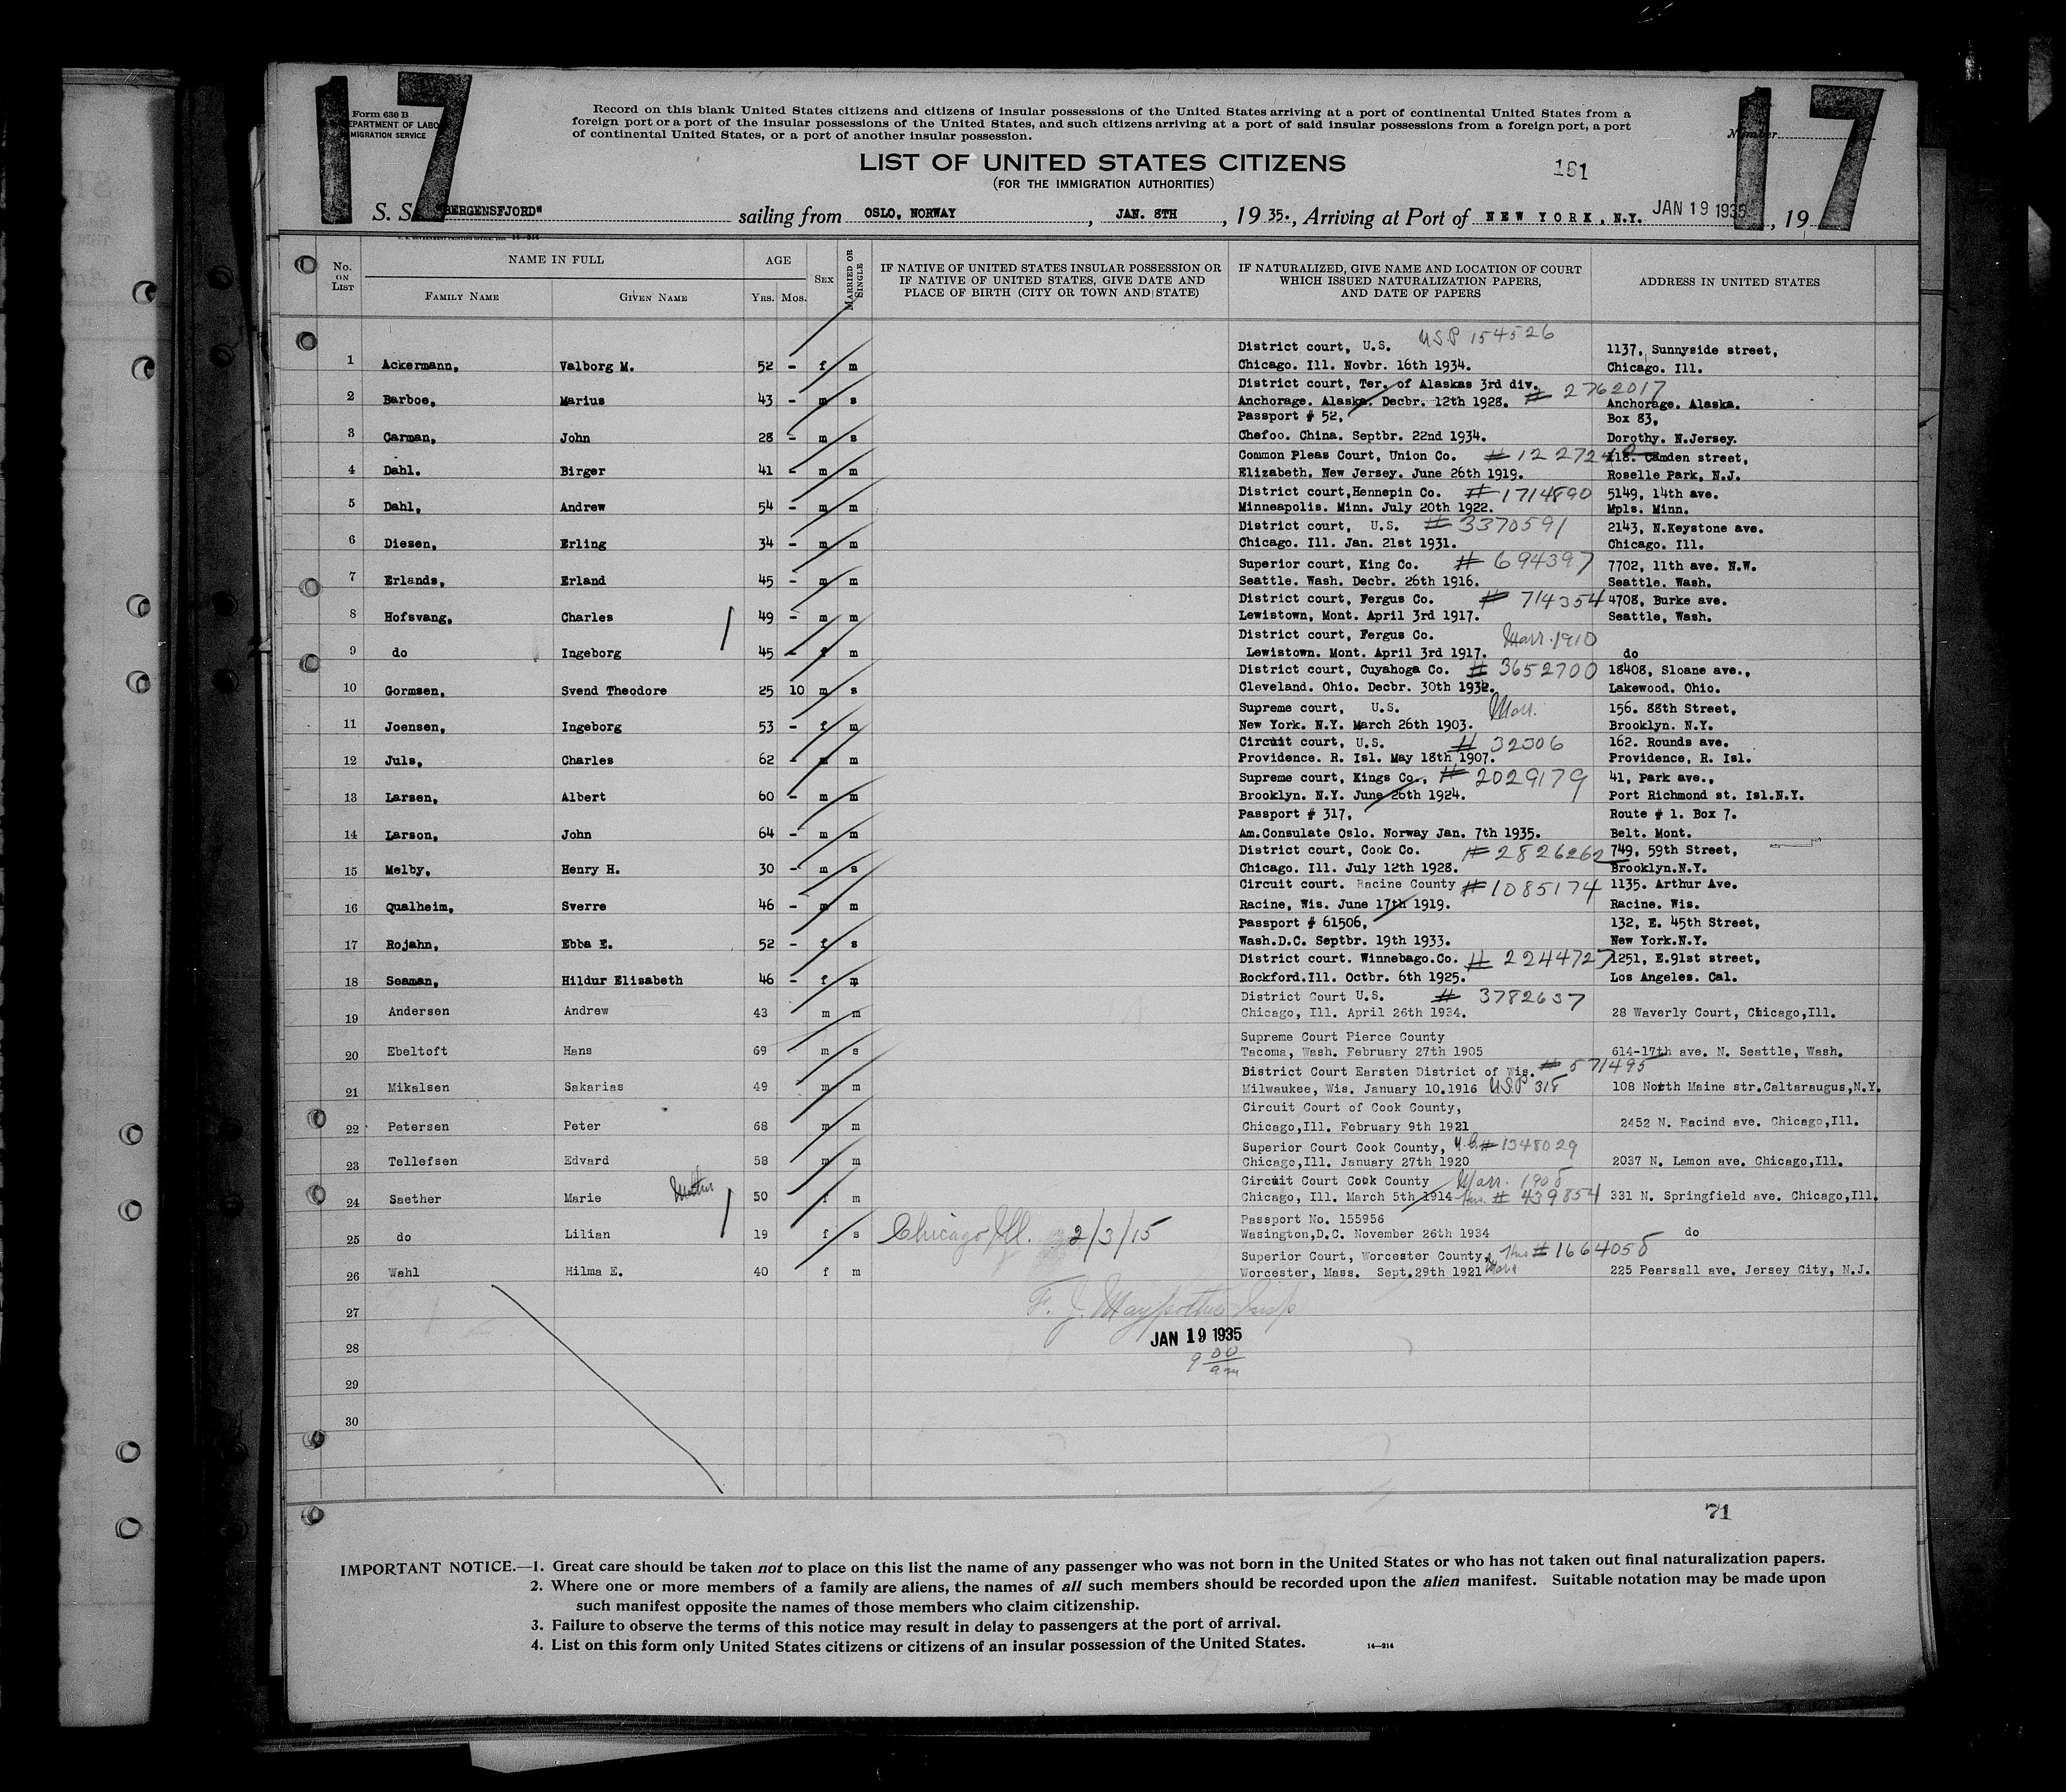 17
17
Form 630 B
DEPARTMENT OF LABOR
IMMIGRATION SERVICE
Record on this blank United States citizens and citizens of insular possessions of the United States arriving at a port of continental United States from a
foreign port or a port of the insular possessions of the United States, and such citizens arriving at a port of said insular possessions from a foreign port, a port
of continental United States, or a port of another insular possession.
Number
LIST OF UNITED STATES CITIZENS
(FOR THE IMMIGRATION AUTHORITIES)
161
S. S. "BERGENSFJORD" sailing from OSLO, NORWAY, JAN. 8TH, 1935., Arriving at Port of NEW YORK, N.Y. JAN 19 1935, 19
No. ON LIST
NAME IN FULL
FAMILY NAME GIVEN NAME
AGE
YRS. MOS.
SEX
MARRIED OR SINGLE
IF NATIVE OF UNITED STATES INSULAR POSSESSION OR
IF NATIVE OF UNITED STATES, GIVE DATE AND
PLACE OF BIRTH (CITY OR TOWN AND STATE)
IF NATURALIZED, GIVE NAME AND LOCATION OF COURT
WHICH ISSUED NATURALIZATION PAPERS,
AND DATE OF PAPERS
ADDRESS IN UNITED STATES
District court, U.S. USP 154526 1137, Sunnyside street,
1 Ackermann, Valborg M. 52 - f m Chicago. Ill. Novbr. 16th 1934. Chicago. Ill.
District court, Ter. of Alaskas 3rd div. # 2762017
2 Barboe, Marius 43 - m s Anchorage. Alaska. Decbr. 12th 1928. Anchorage. Alaska.
Passport # 52, Box 83,
3 Carman, John 28 - m s Chefoo. China. Septbr. 22nd 1934. Dorothy. N.Jersey.
Common Pleas Court, Union Co. 118. Camden street,
4 Dahl. Birger 41 - m m Elizabeth. New Jersey. June 26th 1919. Roselle Park, N.J.
District court,Hennepin Co. # 1714890 5149, 14th ave.
5 Dahl, Andrew 54 - m m Minneapolis. Minn. July 20th 1922. Mpls. Minn.
District court, U.S. # 3370591 2143, N.Keystone ave.
6 Diesen, Erling 34 - m m Chicago. Ill. Jan. 21st 1931. Chicago. Ill.
Superior court, King Co. # 694397 7702, 11th ave. N.W.
7 Erlands, Erland 45 - m m Seattle. Wash. Decbr. 26th 1916. Seattle. Wash.
District court, Fergus Co. # 714354 4708, Burke ave.
8 Hofsvang, Charles 49 - m m Lewistown, Mont. April 3rd 1917. Seattle, Wash.
District court, Fergus Co. Marr. 1910
9 do Ingeborg 45 - f m Lewistown. Mont. April 3rd 1917. do
District court, Cuyahoga Co. # 3652700 18408, Sloane ave.,
10 Gormsen, Svend Theodore 25 10 m s Cleveland. Ohio. Decbr. 30th 1932. Lakewood. Ohio.
Supreme court, U.S. Marr. 156. 88th Street,
11 Joensen, Ingeborg 53 - f m New York. N.Y. March 26th 1903. Brooklyn. N.Y.
Circuit court, U.S. # 32306 162. Rounds ave.
12 Juls, Charles 62 - m m Providence. R. Isl. May 18th 1907. Providence, R. Isl.
Supreme court, Kings Co., # 2029179 41, Park ave.,
13 Larsen, Albert 60 - m m Brooklyn. N.Y. June 26th 1924. Port Richmond st. Isl.N.Y.
Passport # 317, Route # 1. Box 7.
14 Larson, John 64 - m m Am.Consulate Oslo. Norway Jan. 7th 1935. Belt. Mont.
District court, Cook Co. # 2826262 749, 59th Street,
15 Melby, Henry H. 30 - m s Chicago. Ill. July 12th 1928. Brooklyn.N.Y.
Circuit court. Racine County # 1085174 1135. Arthur Ave.
16 Qualheim, Sverre 46 - m m Racine, Wis. June 17th 1919. Racine. Wis.
Passport # 61506, 132, E. 45th Street,
17 Rojahn, Ebba E. 52 - f s Wash.D.C. Septbr. 19th 1933. New York.N.Y.
District court. Winnebago.Co. # 2244727 1251, E.91st street,
18 Seaman, Hildur Elisabeth 46 - f m Rockford.Ill. Octbr. 6th 1925. Los Angeles. Cal.
District Court U.S. # 3782637
19 Andersen Andrew 43 m m Chicago, Ill. April 26th 1934. 28 Waverly Court, Chicago,Ill.
Supreme Court Pierce County
20 Ebeltoft Hans 69 m s Tacoma, Wash. February 27th 1905 614-17th ave. N. Seattle, Wash.
District Court Earsten District of Wis. # 571495
21 Mikalsen Sakarias 49 m m Milwaukee, Wis. January 10.1916 USP 318 108 North Maine str.Caltaraugus,N.Y.
Circuit Court of Cook County,
22 Petersen Peter 68 m m Chicago,Ill. February 9th 1921 2452 N. Racind ave. Chicago,Ill.
Superior Court Cook County, # 1348029
23 Tellefsen Edvard 58 m m Chicago,Ill. January 27th 1920 2037 N. Lamon ave. Chicago,Ill.
Circuit Court Cook County Marr. 1908
24 Saether Marie Mother 50 f m Chicago, Ill. March 5th 1914 # 439854 331 N. Springfield ave. Chicago,Ill.
Passport No. 155956
25 do Lilian 19 f s Chicago Ill. 2/3/15 Wasington,D.C. November 26th 1934 do
Superior Court, Worcester County, # 1664058
26 Wahl Hilma E. 40 f m Worcester, Mass. Sept.29th 1921 Marr 225 Pearsall ave. Jersey City, N.J.
27
JAN 19 1935
28
9 00 am
29
30
71
IMPORTANT NOTICE.—1. Great care should be taken not to place on this list the name of any passenger who was not born in the United States or who has not taken out final naturalization papers.
2. Where one or more members of a family are aliens, the names of all such members should be recorded upon the alien manifest. Suitable notation may be made upon
such manifest opposite the names of those members who claim citizenship.
3. Failure to observe the terms of this notice may result in delay to passengers at the port of arrival.
4. List on this form only United States citizens or citizens of an insular possession of the United States. 14—214